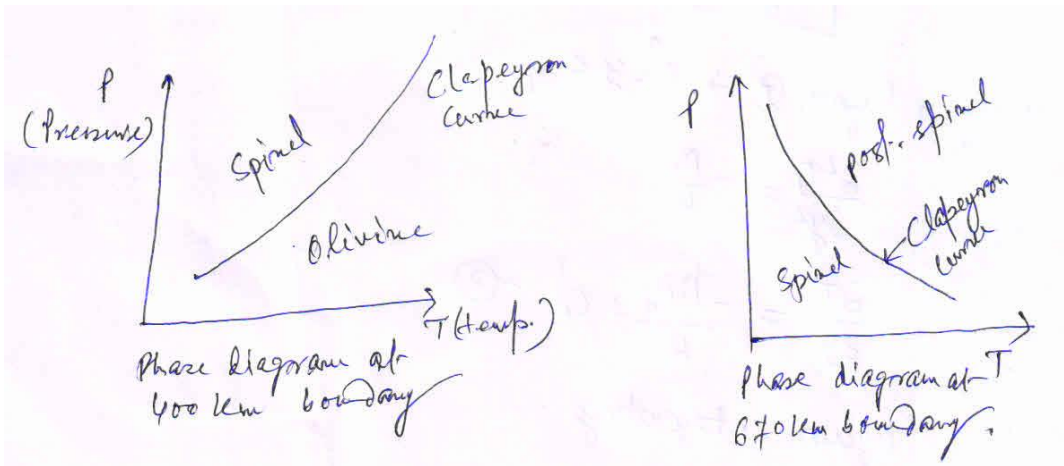 P
(Pressure)
Spinel
Clapeyron
curve
Olivine
T (temp.)
Phase diagram at
400 km boundary
P
post-spinel
Clapeyron
curve
Spinel
T
Phase diagram at
670 km boundary.